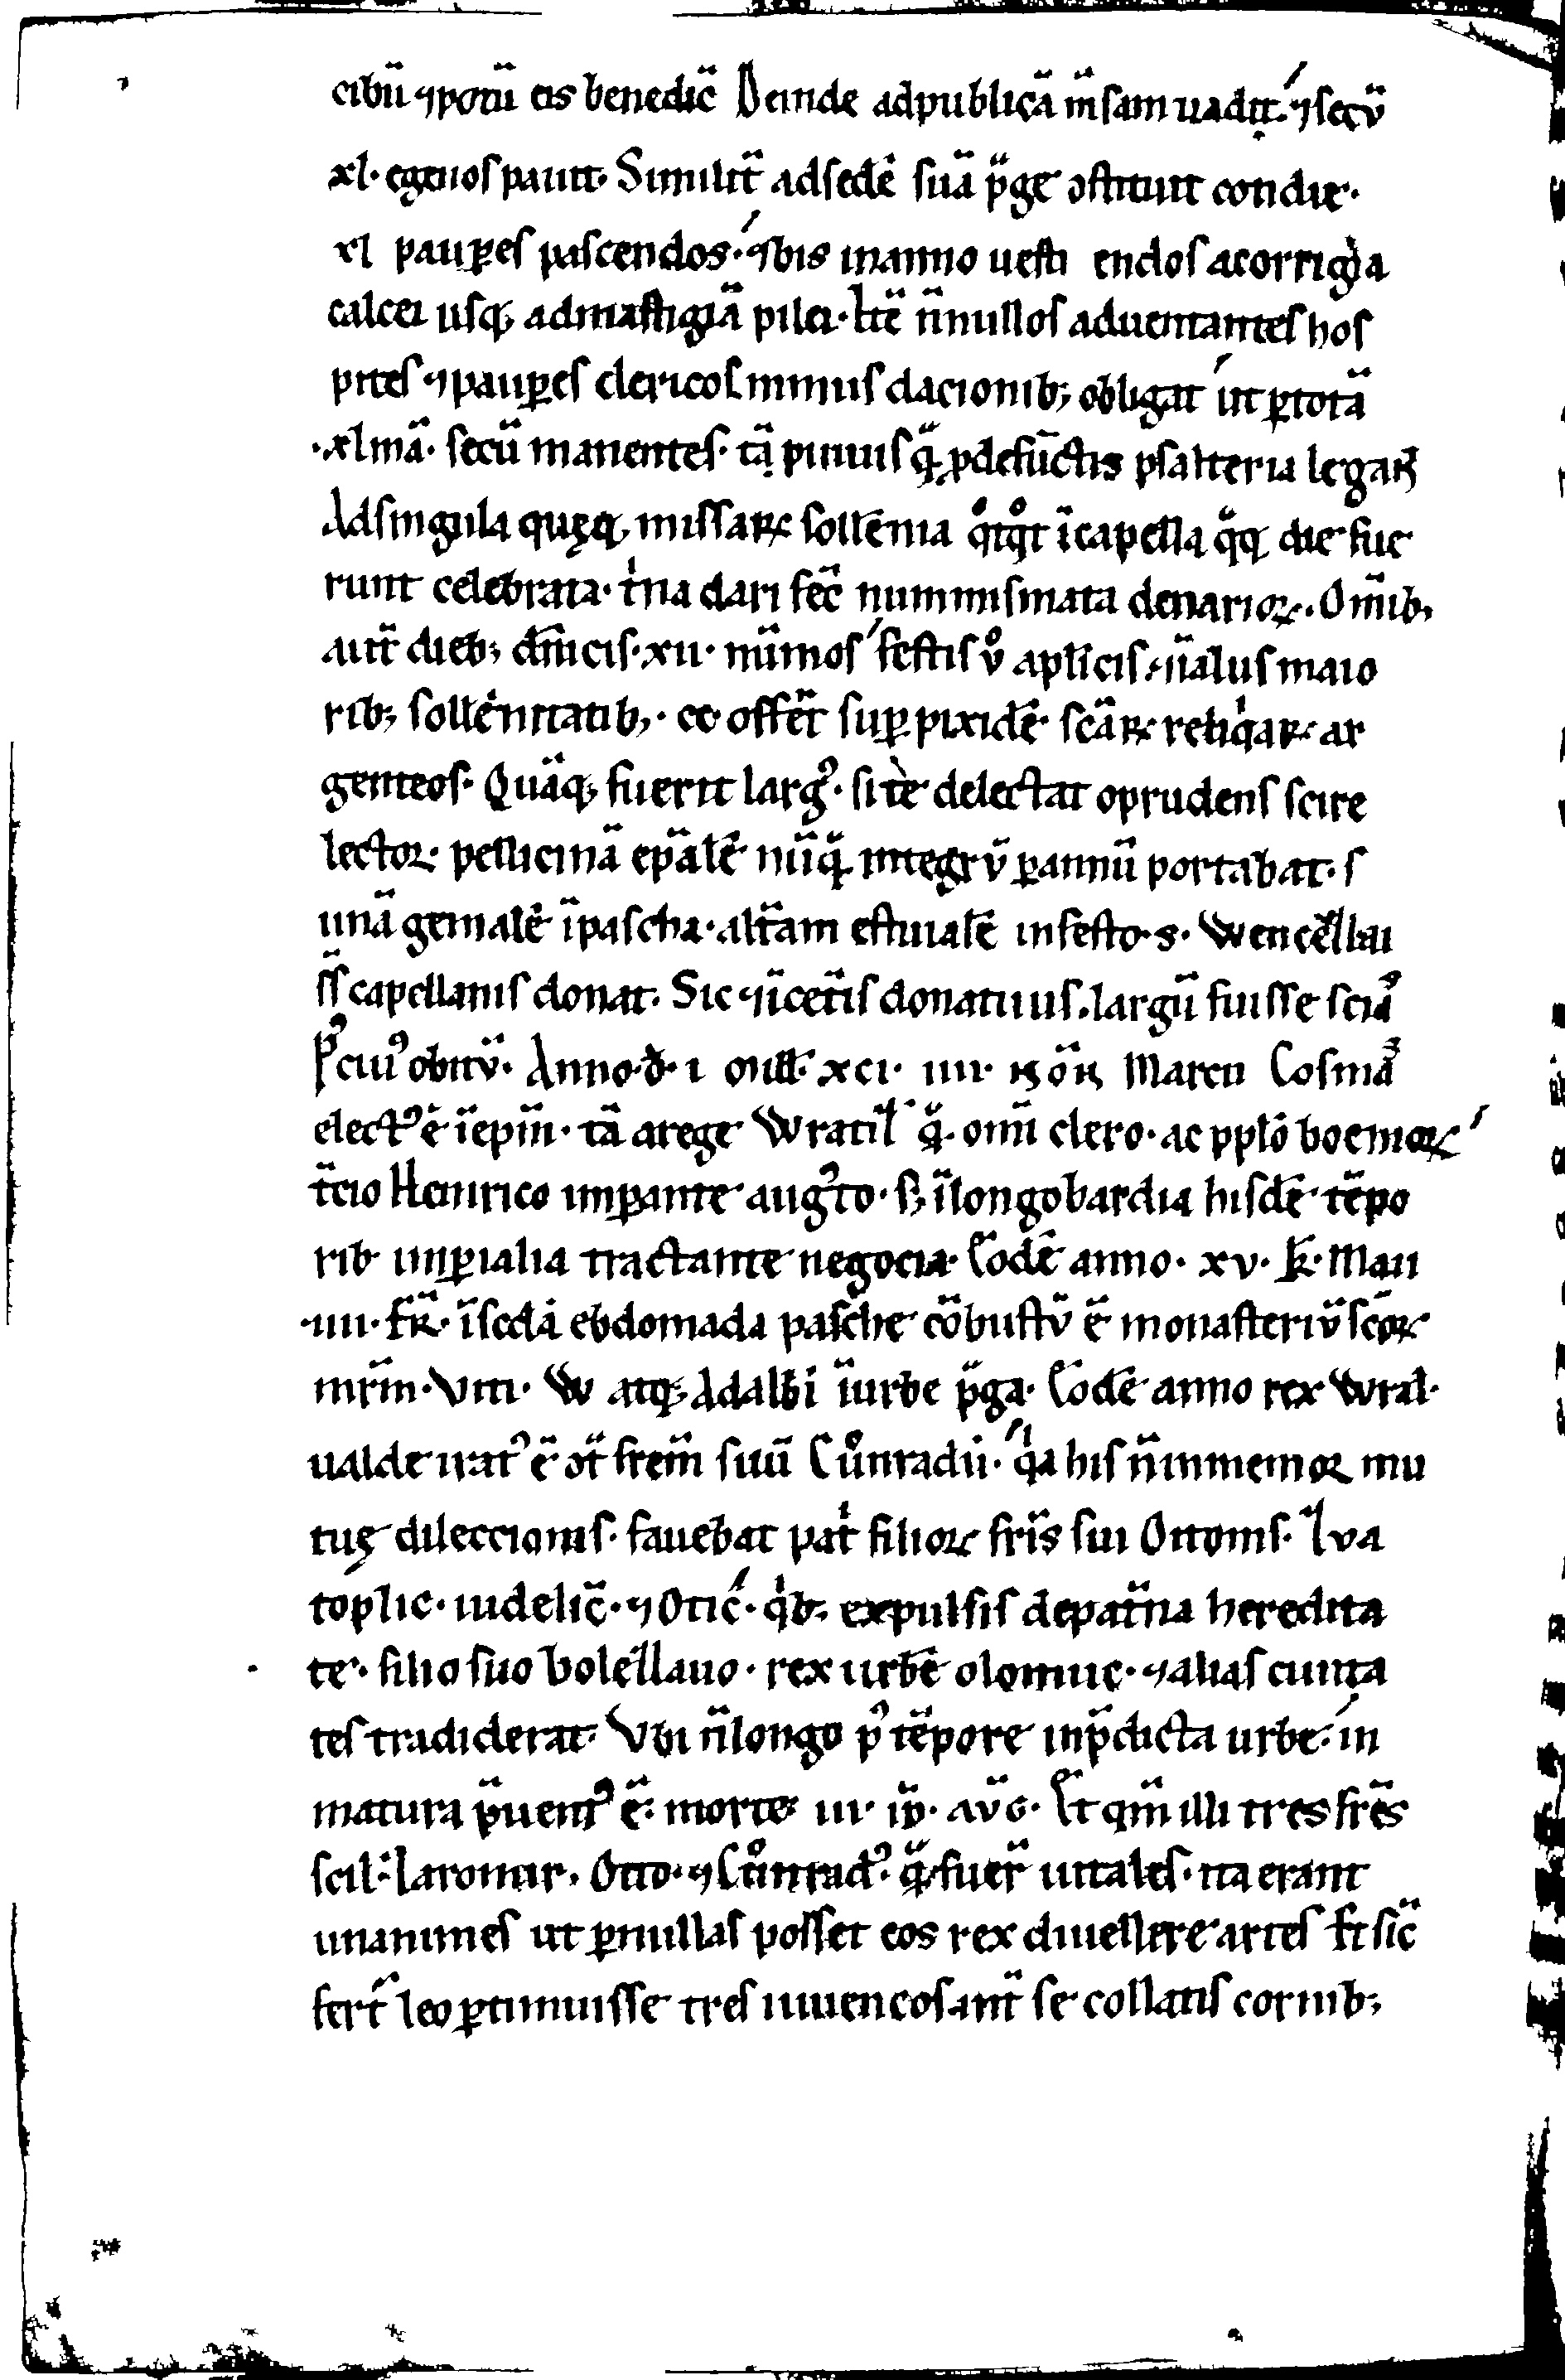 cibū ⁊potū eis benedic̄ Deinde adpublicā m̄sam uadit. ⁊secū
xl. egenos pauit. Similit̄ adsedē suā p̄ge ↄstituit cotidie.
xl paup̲es pascendos. ⁊bis inanno uesti endos acorrigia
calcei usq; admastigiā pilei. Itē n̄nullos aduentantes hos
pites ⁊paup̲es clericos minus dacionib; obligat ut p̲totā
.xlmā. secū manentes. tā p̱uiuis q̄. ꝓdefūctis psalteria legaɴ̄
Adsingula quęq; missaꝝ sollēnia qͦtqͦt īcapella q̄q; die fue
runt celebrata. tⁱna dari fec̄ nummismata denarioꝝ. Om̄ib;
aut̄ dieb; dn̄icis. xii. nūmos festis uͦ aplicis. ⁊ī alius maio
rib; sollēnitatib;. cc offert̄ sup̲ pixidē scāꝝ reliqⁱaꝝ ar
genteos. Quāq; fuerit largꝰ. si te delectat oprudens scire
lector. pellicinā ep̄alē nūq̄. integrū p̲annū portabat. s
unā gemalē īpascha. alt̄am estiualē infesto. s. Wencēllai
ss̄ capellanis donat. Sic ⁊īcet̄is donatiuis. largū fuisse sciaꝰ
Pꝰ ciuꝰ obitū. Anno. d. i mill̄. xci. iiii. ɴōɴ Marcii Cosmā
electꝰ ē īep̄m. tā arege Wratil̄ q̄. om̄i clero. ac ppl̄o boemoꝝ
t̄cio Heinrico imp̲ante augꝰto. s; īlongobardia hisdē tēpo
rib imp̲ialia tractante negocia. Eodē anno. xv. k̄. Maii
.iiii. fr̄. īscd̄a ebdomada pasche cōbustū ē monasteriū scōꝝ
mr̄m. Viti. W atq; Adalb̄i īurbe p̄ga. Eodē anno rex Wral.
ualde iratꝰ ē ↄt̄ frem̄ suū Cuͦnradū. qⁱa his n̄inmemor mu
tuę dileccionis. fauebat patⁱ filioꝝ fr̄is sui Ottonis. Zva
toplic. iudelic̄. ⁊Otic̄. qⁱb; expulsis depat̄na heredita
te. filio suo bolēllauo. rex urbē olomuc. ⁊alias ciuita
tes tradiderat. Vbi n̄longo pꝰ tēpore inp̄dicta urbe. in
matura p̄uentꝰ ē. morte iii. id̄. av̄g. Et qm̄ illi tres fr̄es
scil. Iaromir. Otto. ⁊Cuͦnradꝰ. q̄. fuer̄ uitales. ita erant
unanimes ut p̲nullas posset eos rex diuellere artes Et sic̄
fert̄ leo p̲timuisse tres iuuencos. int̄ se collatis cornib;